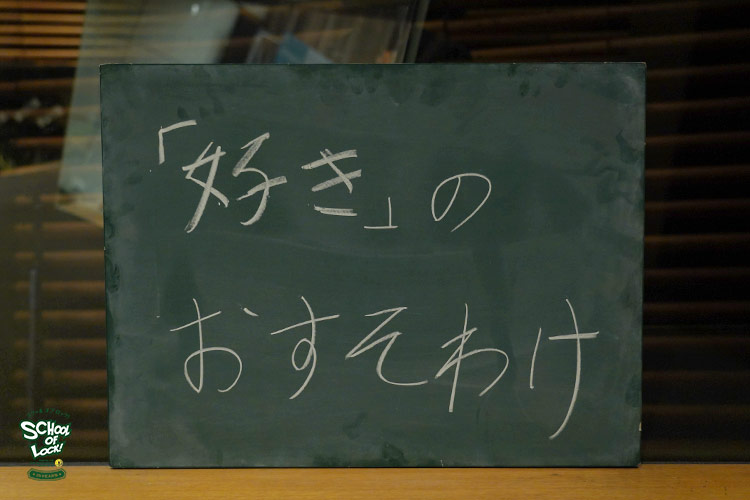 「好き」の
おすそわけ
SCHOOL
OF
LOCK!